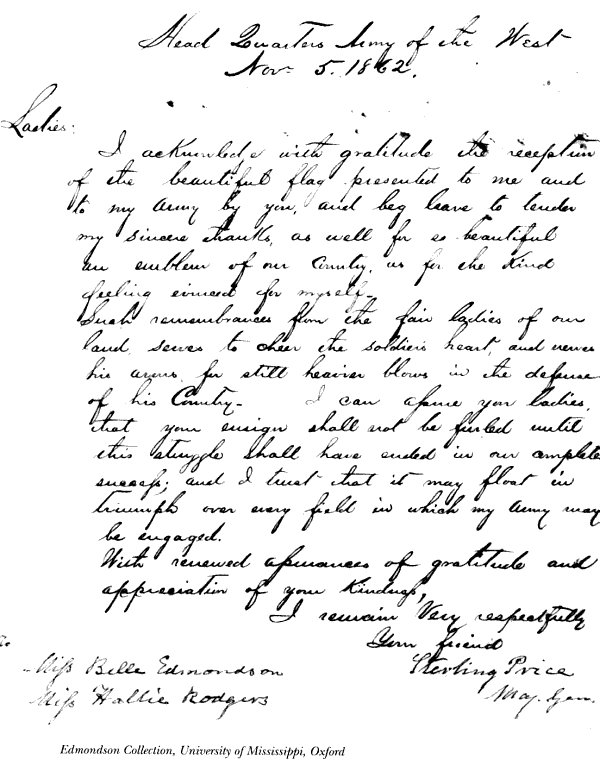 Head Quarters Army of the West
Nov. 5. 1862.
Ladies:
I acknowledge with gratitude the reception
of the beautiful flag presented to me and
to my Army by you, and beg leave to tender
my sincere thanks, as well for so beautiful
an emblem of our Country, as for the kind
feeling evinced for myself.
Such remembrances from the fair ladies of our
land, serves to cheer the soldiers heart, and nerves
his arms for still heavier blows in the defense
of his Country- I can assure you ladies,
that your ensign shall not be furled until
this struggle shall have ended in our complete
success; and I trust that it may float in
triumph over every field in which my Army may
be engaged.
With renewed assurances of gratitude and
appreciation of your kindness,
I remain Very respectfully
Your friend
Sterling Price
Maj. Gen.
To
Miss Belle Edmondson
Miss Hallie Rodgers
Edmondson Collection, University of Mississippi, Oxford